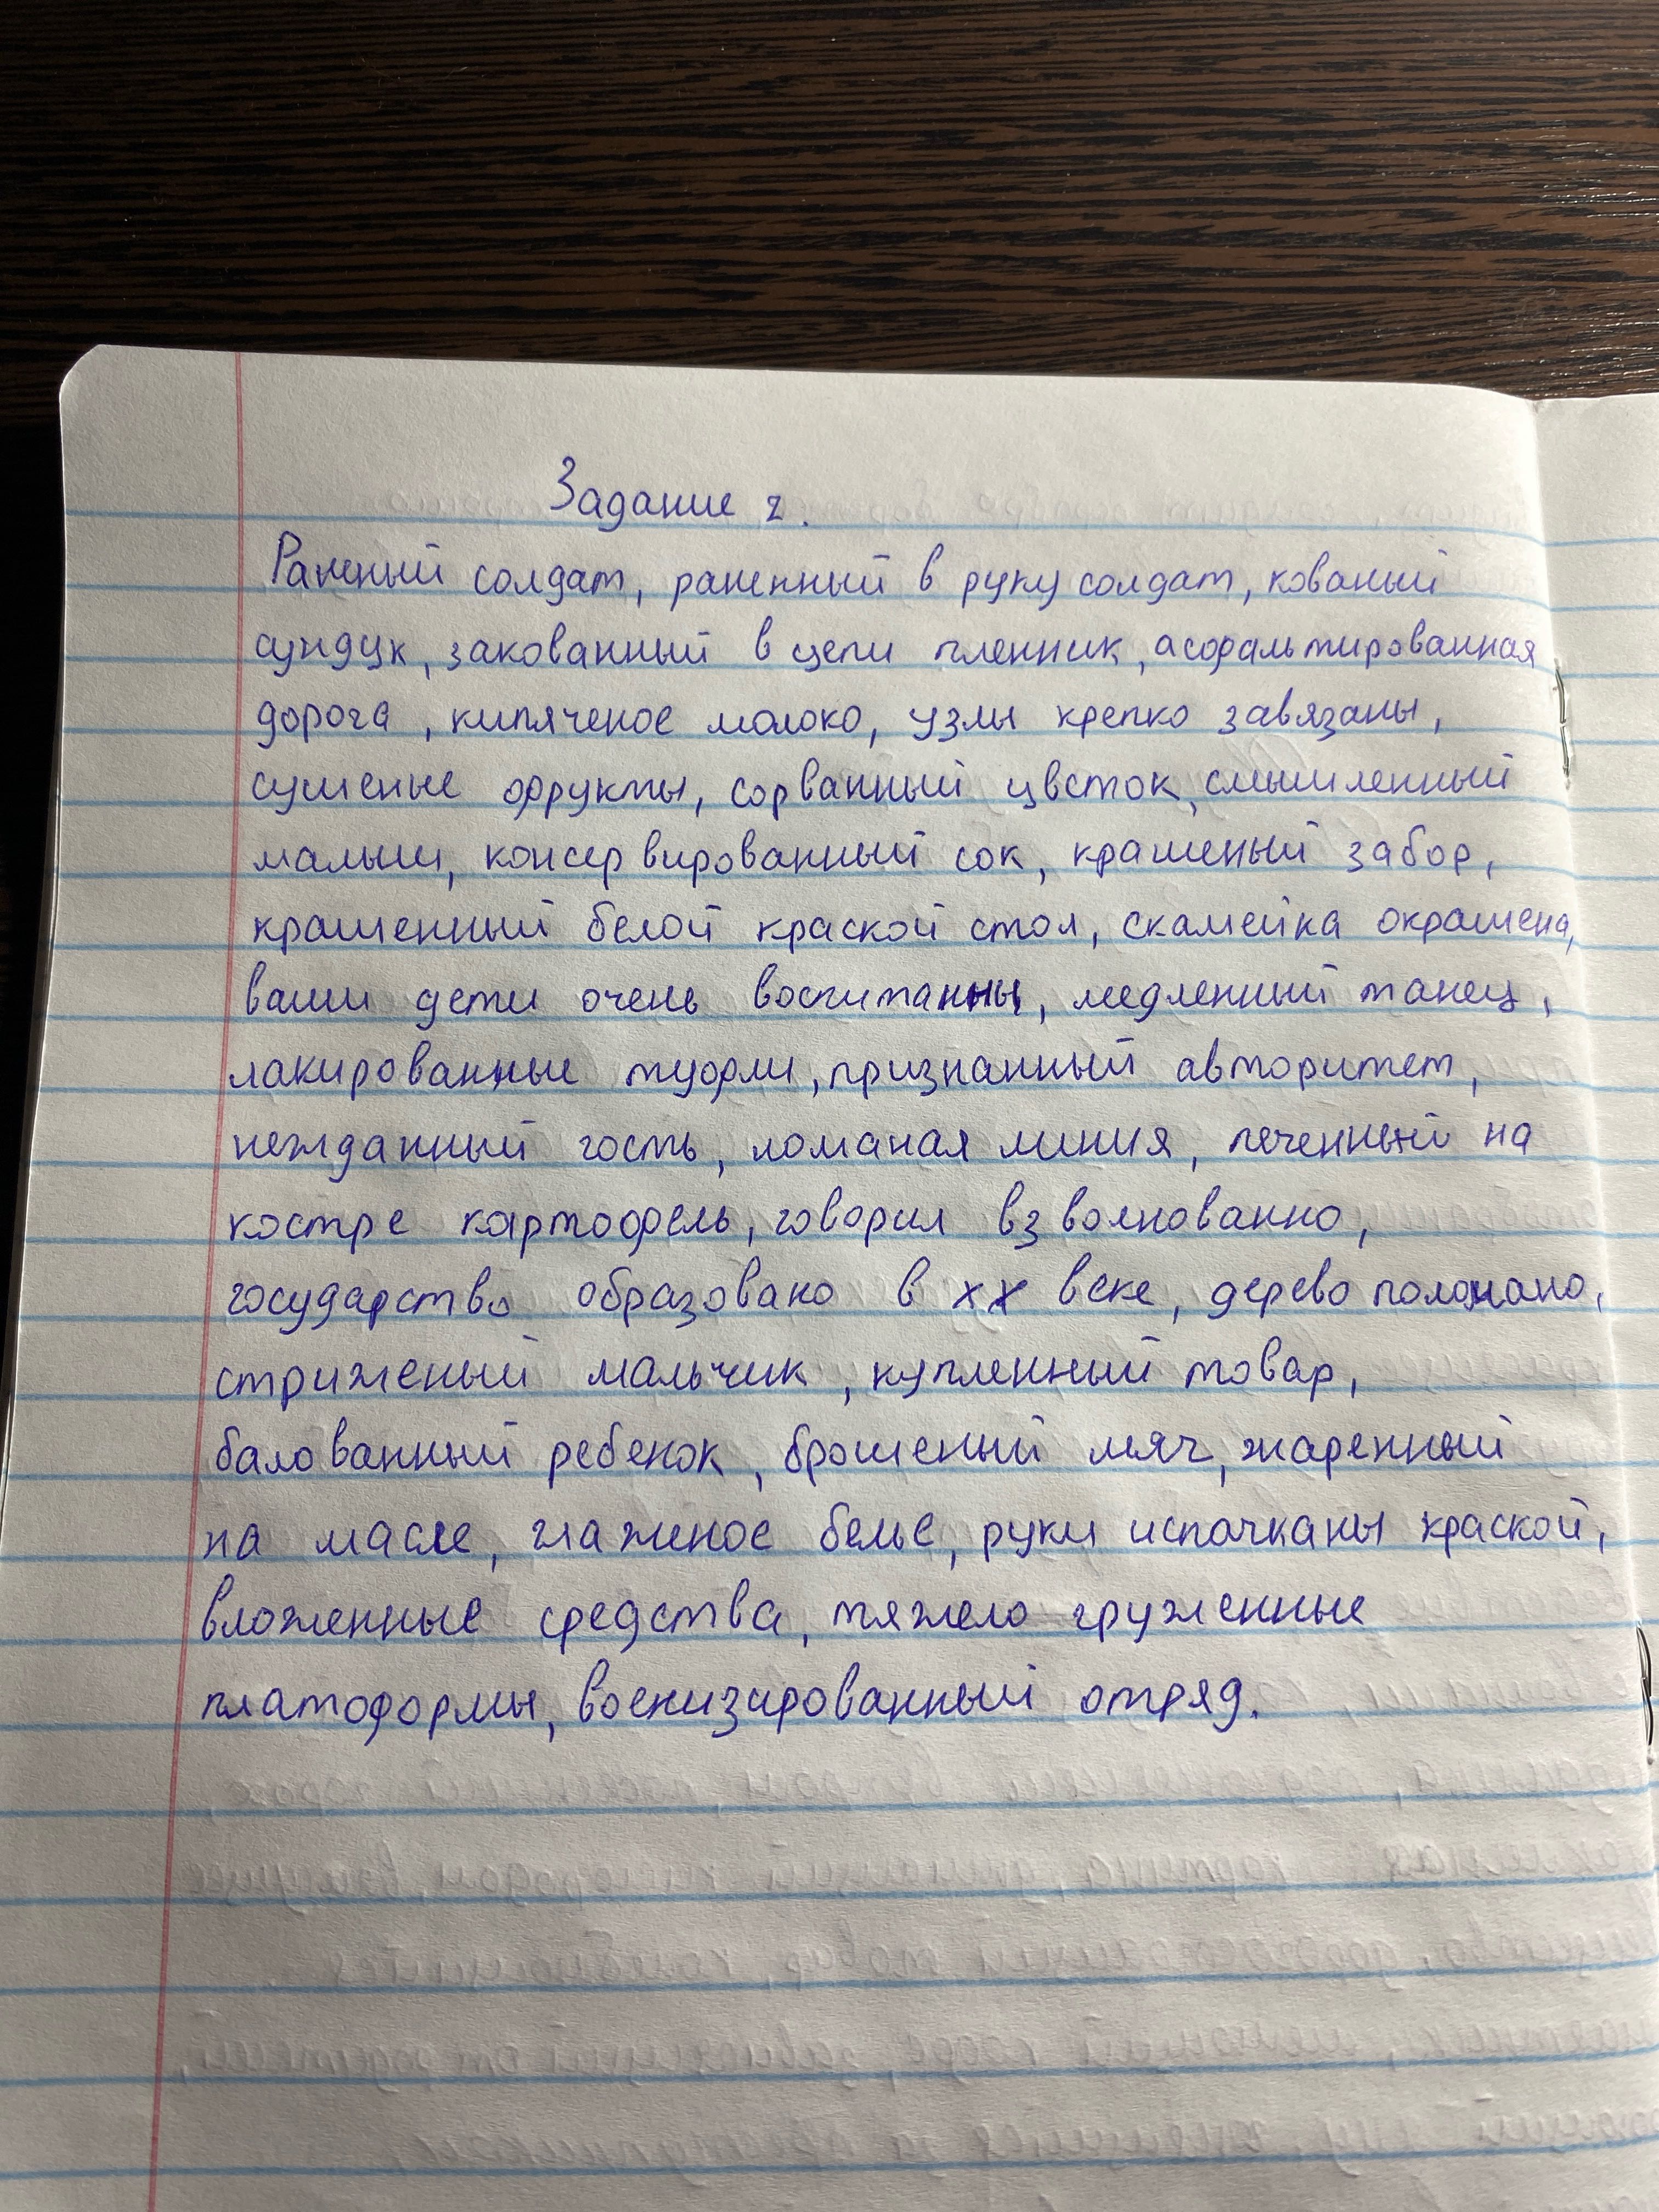 Задание 2.
Раненый солдат, раненный в руку солдат, кованый
сундук, закованный в цепи пленник, асфальтированная
дорога, кипяченое молоко, узлы крепко завязаны,
сушеные фрукты, сорванный цветок, смышленный
малыш, консервированный сок, крашеный забор,
крашенный белой краской стол, скамейка окрашена,
ваши дети очень воспитанны, медленный танец,
лакированные туфли, признанный авторитет,
нежданный гость, ломаная линия, печенный на
костре картофель, говорил взволнованно,
государство образовано в XX веке, дерево поломано,
стриженый мальчик, купленный товар,
балованный ребенок, брошеный мяч, жаренный
на масле, глаженое белье, руки испачканы краской,
вложенные средства, тяжело груженные
платформы, военизированный отряд.